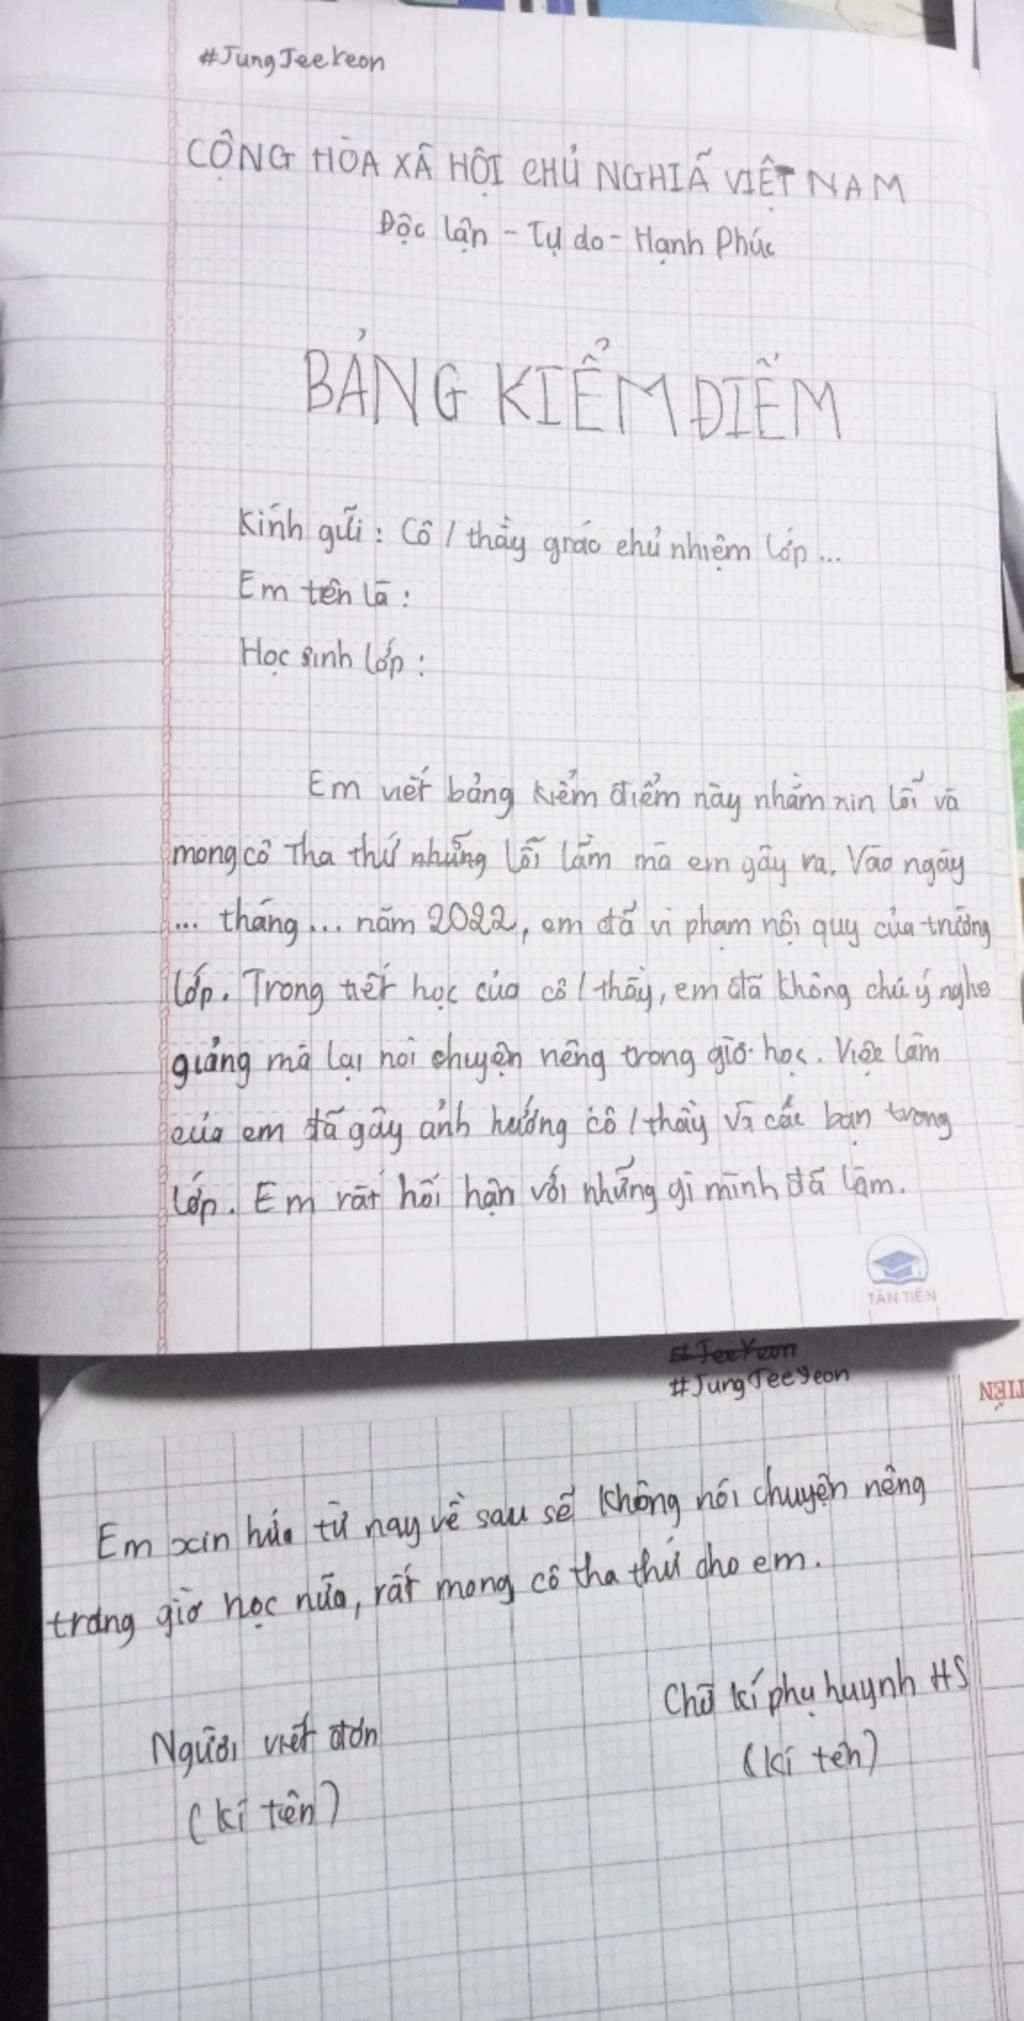 #JungJeeYeon
CỘNG HÒA XÃ HỘI CHỦ NGHIÃ VIỆT NAM
Độc lận - Tự do - Hạnh Phúc
BẢNG KIỂM ĐIỂM
Kính gửi : Cô / thầy giáo chủ nhiệm lớp ...
Em tên là :
Học sinh lớp :
Em viết bảng kiểm điểm này nhằm xin lỗi và
mong cô Tha thứ những lỗi lầm mà em gây ra. Vào ngày
... tháng ... năm 2022, em đã vi phạm nội quy của trường
lớp. Trong tiết học của cô / thầy, em đã không chú ý nghe
giảng mà lại nói chuyện nêng trong giờ học. Việc làm
của em đã gây ảnh hưởng cô / thầy và các bạn trong
lớp. Em rất hối hận với những gì mình đã làm.
TÂN TIẾN
#JeeYeon
#JungJeeYeon
TIẾN
Em xin hứa từ nay về sau sẽ không nói chuyện nêng
trong giờ học nữa, rất mong cô tha thứ cho em.
Chữ kí phụ huynh HS
(kí tên)
Người viết đơn
(kí tiên)